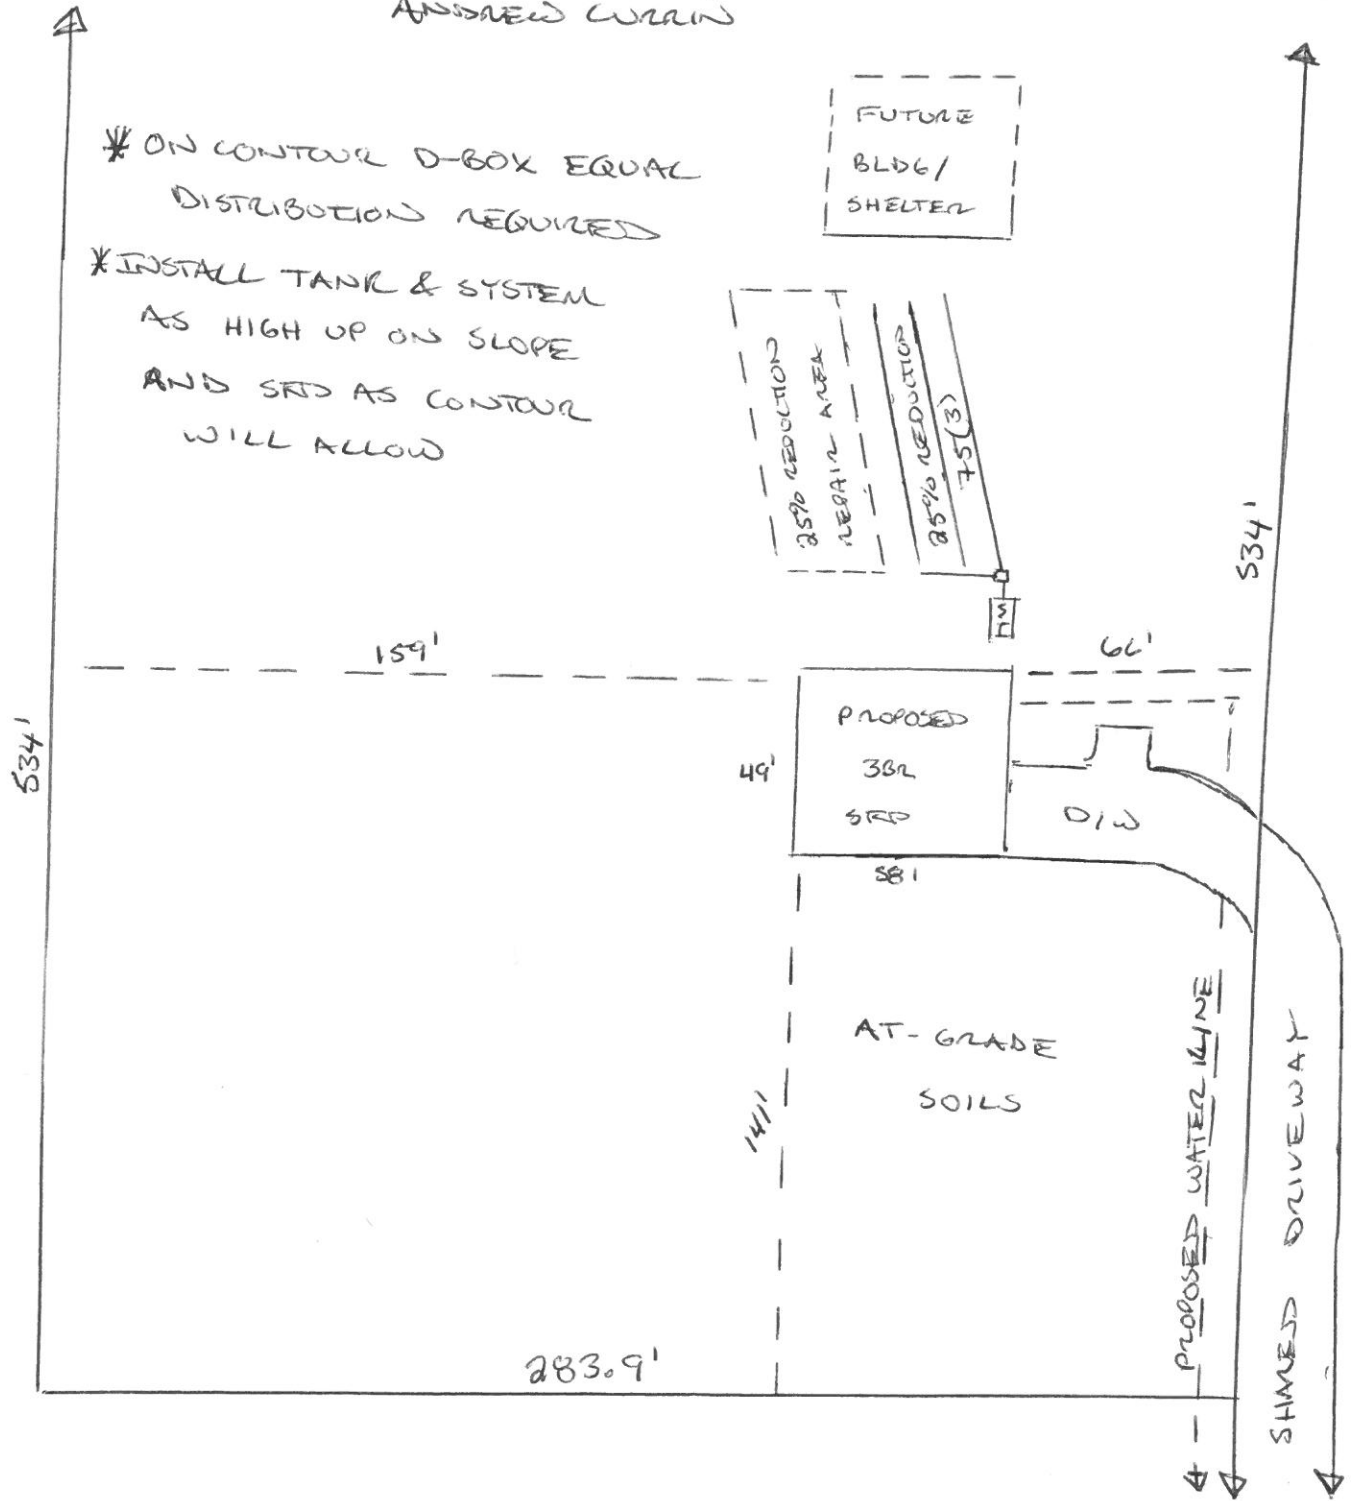 ANDREW CURRIN
* ON CONTOUR D-BOX EQUAL
DISTRIBUTION REQUIRED
* INSTALL TANK & SYSTEM
AS HIGH UP ON SLOPE
AND SFD AS CONTOUR
WILL ALLOW
FUTURE
BLDG/
SHELTER
25% REDUCTION
REPAIR AREA
25% REDUCTION
75(3)
534'
159'
66'
534'
PROPOSED
3BR
SFD
49'
D/W
58'
AT-GRADE
SOILS
141'
PROPOSED WATER LINE
SHARED DRIVEWAY
283.9'